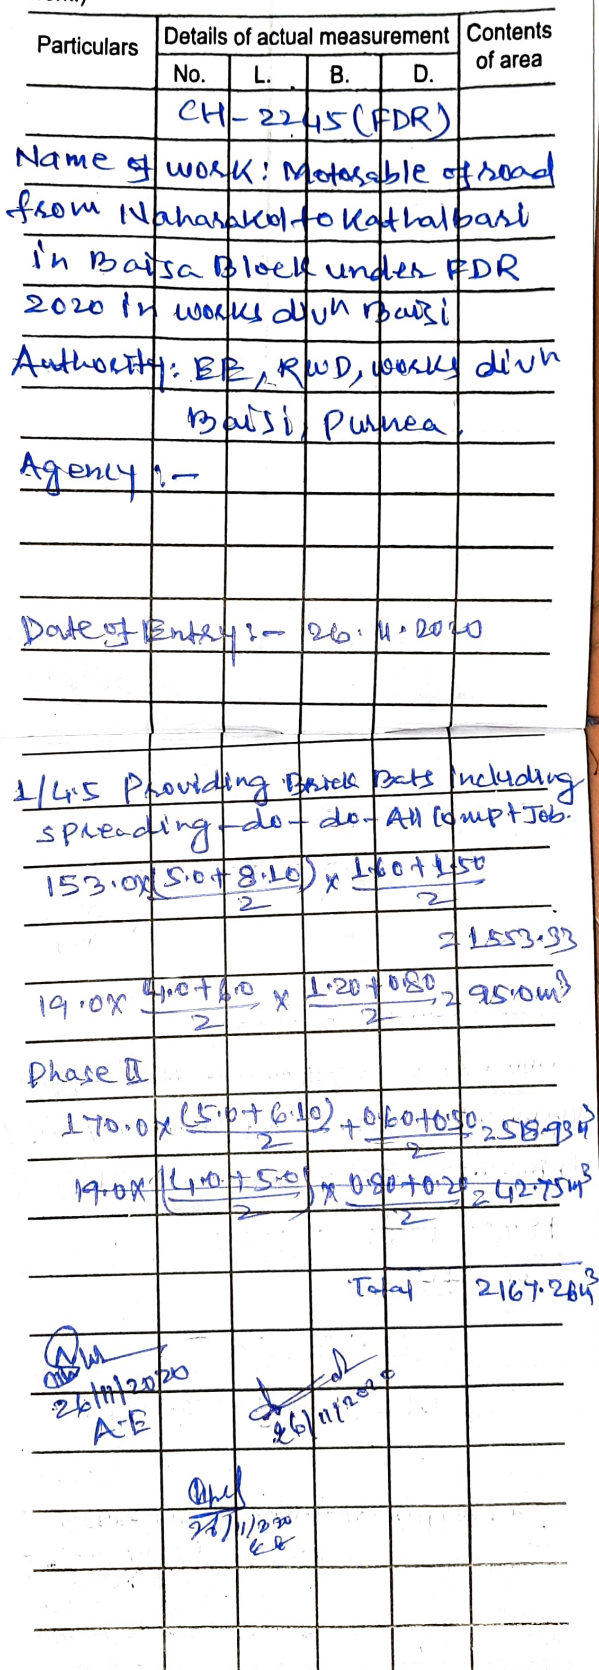 Particulars
Details of actual measurement
Contents of area
No. L. B. D.
CH-2245(FDR)
Name of work: Motorable of road
from Naharakol to Kathalbari
in Baisa Block under FDR
2020 in works divn Baisi
Authority: EE, RWD, works divn
Baisi, Purnea.
Agency :-
Date of Entry :- 26.11.2020
1/4.5 Providing Brick Bats including
spreading -do-do- All Compt Job.
153.0x(5.0+8.10)/2 x 1.60+1.50/2
= 1553.33
19.0x 4.0+6.0/2 x 1.20+0.80/2 = 95.0m³
Phase II
170.0x (5.0+6.10)/2 + 0.60+0.50/2 = 518.93m³
19.0x (4.0+5.0)/2 x 0.80+0.20/2 = 42.75m³
Total 2167.26m³
26/11/2020
A-E
26/11/2020